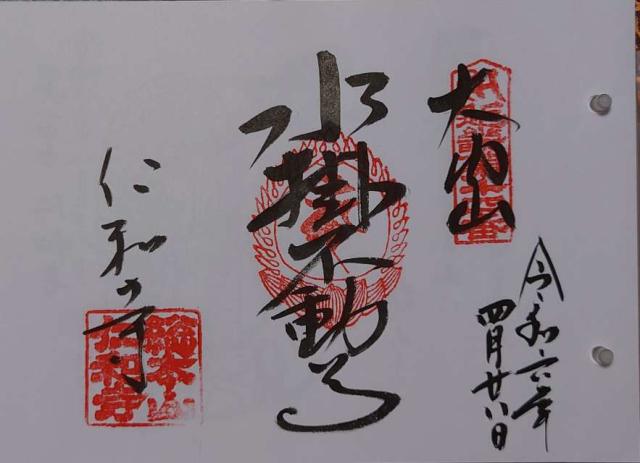 令和六年
四月廿八日
大内山
水掛不動尊
仁和寺
総本山
仁和寺